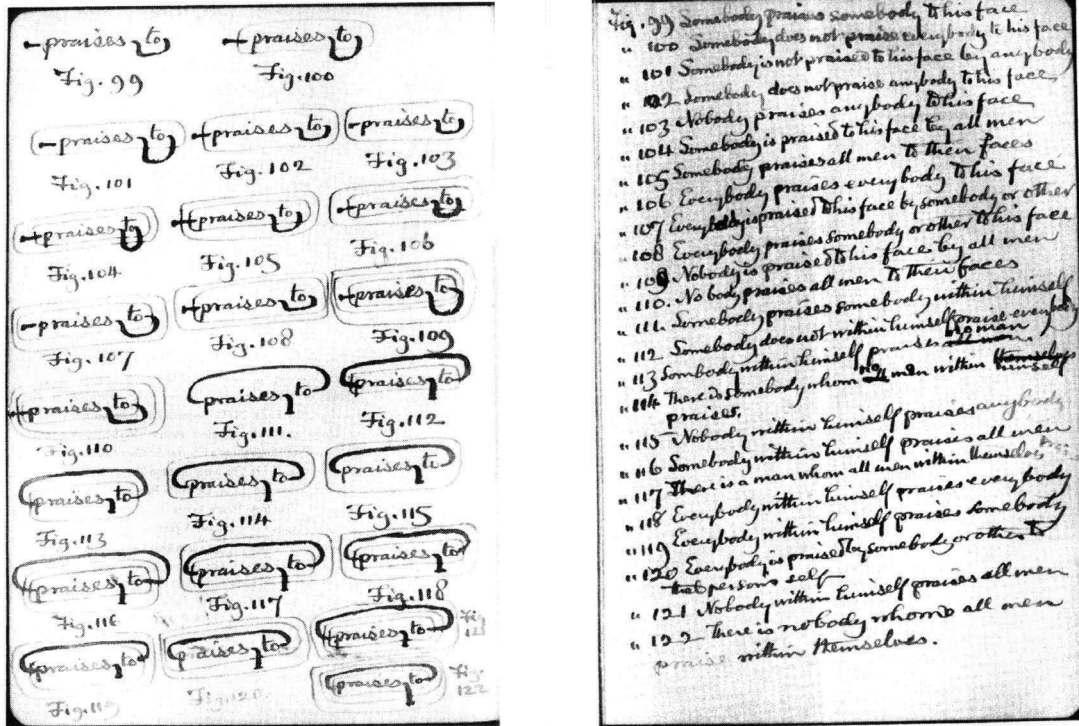 praises to praises to
Fig. 99 Fig. 100
praises to praises to praises to
Fig. 101 Fig. 102 Fig. 103
praises to praises to praises to
Fig. 104 Fig. 105 Fig. 106
praises to praises to praises to
Fig. 107 Fig. 108 Fig. 109
praises to praises to praises to
Fig. 110 Fig. 111. Fig. 112
praises to praises to praises to
Fig. 113 Fig. 114 Fig. 115
praises to praises to praises to
Fig. 116 Fig. 117 Fig. 118
praises to praises to praises to Fig. 121
praises to Fig. 122
Fig. 119 Fig. 120
Fig. 99 Somebody praises somebody to his face
" 100 Somebody does not praise everybody to his face
" 101 Somebody is not praised to his face by anybody
" 102 Somebody does not praise anybody to his face
" 103 Nobody praises anybody to his face
" 104 Somebody is praised to his face by all men
" 105 Somebody praises all men to their faces
" 106 Everybody praises everybody to his face
" 107 Everybody is praised to his face by somebody or other
" 108 Everybody praises somebody or other to his face
" 109 Nobody is praised to his face by all men
" 110. Nobody praises all men to their faces
" 111. Somebody praises somebody within himself
" 112 Somebody does not within himself praise everybody
" 113 Sombody within himself praises no man
" 114 There is somebody whom no man within himself
praises.
" 115 Nobody within himself praises anybody
" 116 Somebody within himself praises all men
" 117 There is a man whom all men within themselves
" 118 Everybody within himself praises everybody
" 119 Everybody within himself praises somebody
" 120 Everybody is praised by somebody or other to
that person's self
" 121 Nobody within himself praises all men
" 122 There is nobody whom all men
praise within themselves.